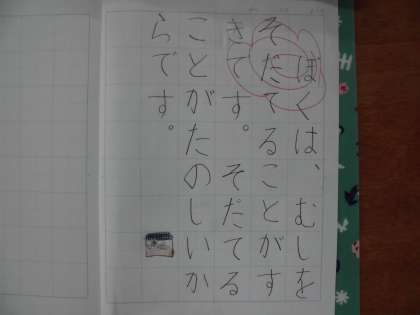 ぼくは、むしを
そだてることがす
きです。そだてる
ことがたのしいか
らです。